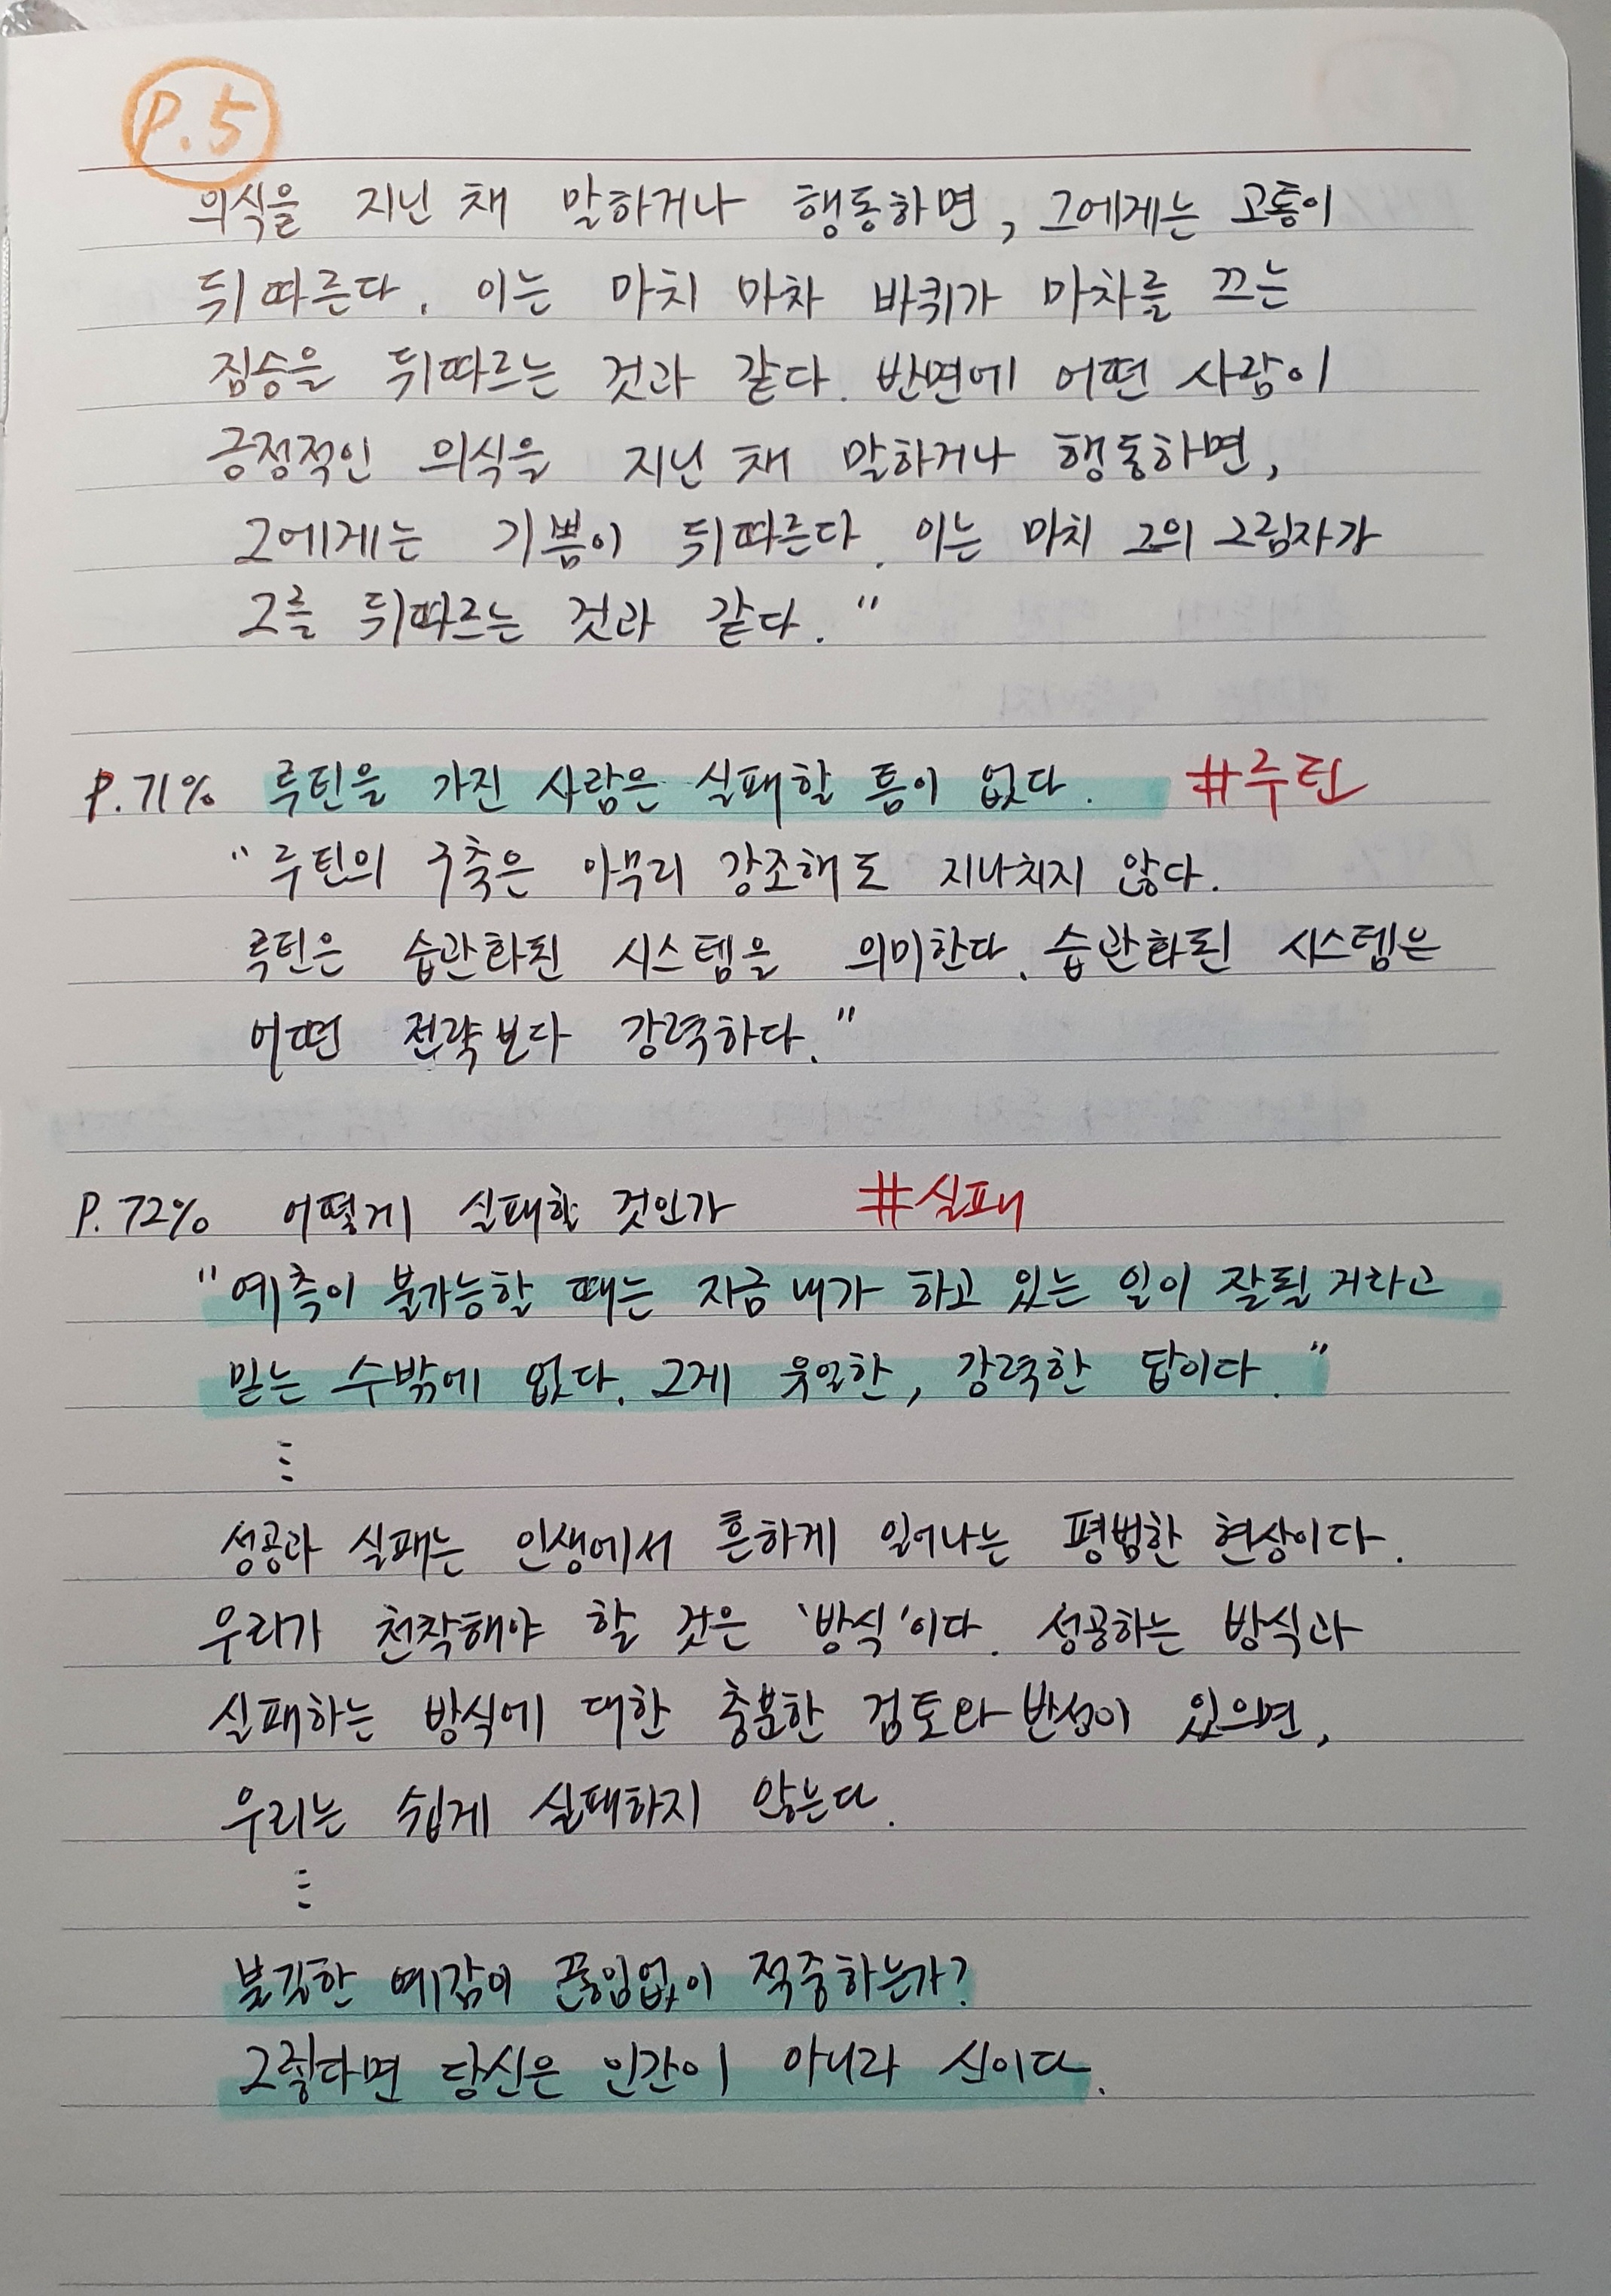 P.5
의식을 지닌 채 말하거나 행동하면, 그에게는 고통이
뒤따른다. 이는 마치 마차 바퀴가 마차를 끄는
짐승을 뒤따르는 것과 같다. 반면에 어떤 사람이
긍정적인 의식을 지닌 채 말하거나 행동하면,
그에게는 기쁨이 뒤따른다. 이는 마치 그의 그림자가
그를 뒤따르는 것과 같다."
P.71% 루틴을 가진 사람은 실패할 틈이 없다. #루틴
"루틴의 구축은 아무리 강조해도 지나치지 않다.
루틴은 습관화된 시스템을 의미한다. 습관화된 시스템은
어떤 전략보다 강력하다."
P.72% 어떻게 실패할 것인가 #실패
"예측이 불가능할 때는 지금 내가 하고 있는 일이 잘될 거라고
믿는 수밖에 없다. 그게 유일한, 강력한 답이다."
⋮
성공과 실패는 인생에서 흔하게 일어나는 평범한 현상이다.
우리가 천착해야 할 것은 '방식'이다. 성공하는 방식과
실패하는 방식에 대한 충분한 검토와 반성이 있으면,
우리는 쉽게 실패하지 않는다.
⋮
불길한 예감이 끊임없이 적중하는가?
그렇다면 당신은 인간이 아니라 신이다.